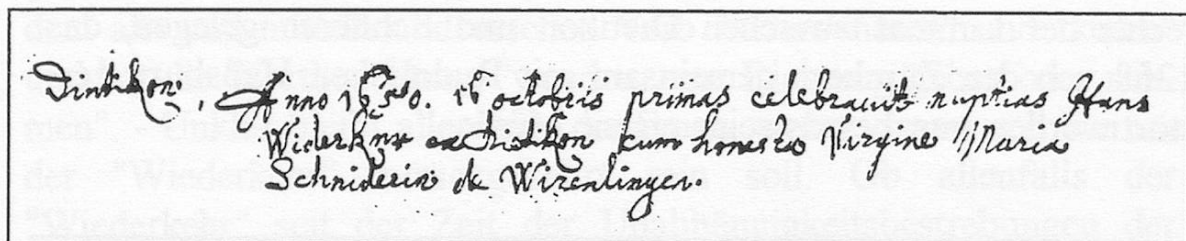 Dintikon, Anno 1650. 16 octobris primas celebravit nuptias Hans
Widerkher ex Dietikon cum honesta Virgine Maria
Schniderin de Würenlingen.